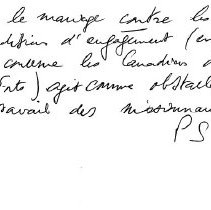 le mariage contre les
ditions d'engagement (en
concerne les Canadiens
) agit comme obstacle
travail des missionnai
P S